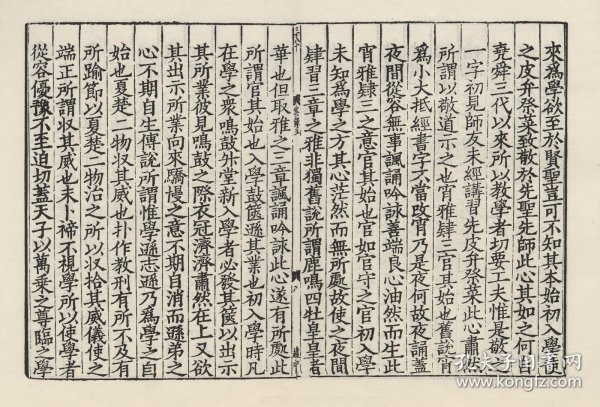 來爲學欲至於賢聖豈可不知其本始初入學使
之皮弁祭菜致敬於先聖先師此心其如之何自
堯舜三代以來所以教學者切要工夫惟是敬之
一字初見師友未經講習先皮弁祭菜此心肅然
所謂以敬道示之也宵雅肄三官其始也舊說宵
爲小大抵經書字不當改宵乃是夜何故夜誦蓋
夜間從容無事諷誦吟詠善端良心油然而生此
宵雅肄三之意官其始也官如官守之官初入學
未知爲學之方其心茫然而無所處故使之夜間
肄習三章之雅非獨舊說所謂鹿鳴四牡皇皇者
華也但取雅之三章諷誦吟詠此心遂有所處此
所謂官其始也入學鼓篋遜其業也初入學時凡
在學之衆鳴鼓升堂新入學者必發其篋以出示
其所業彼見鳴鼓之際衣冠濟濟肅然在上又欲
其出示所業向來驕慢之意不期自消而遜弟之
心不期自生傅說所謂惟學遜志遜乃爲學之自
始也夏楚二物收其威也扑作教刑有所不及有
所踰節以夏楚二物治之所以收拾其威儀使之
端正所謂收其威也未卜禘不視學所以使學者
從容優豫不至迫切蓋天子以萬乘之尊臨之學
孔夫子旧书网
www.kongfz.com